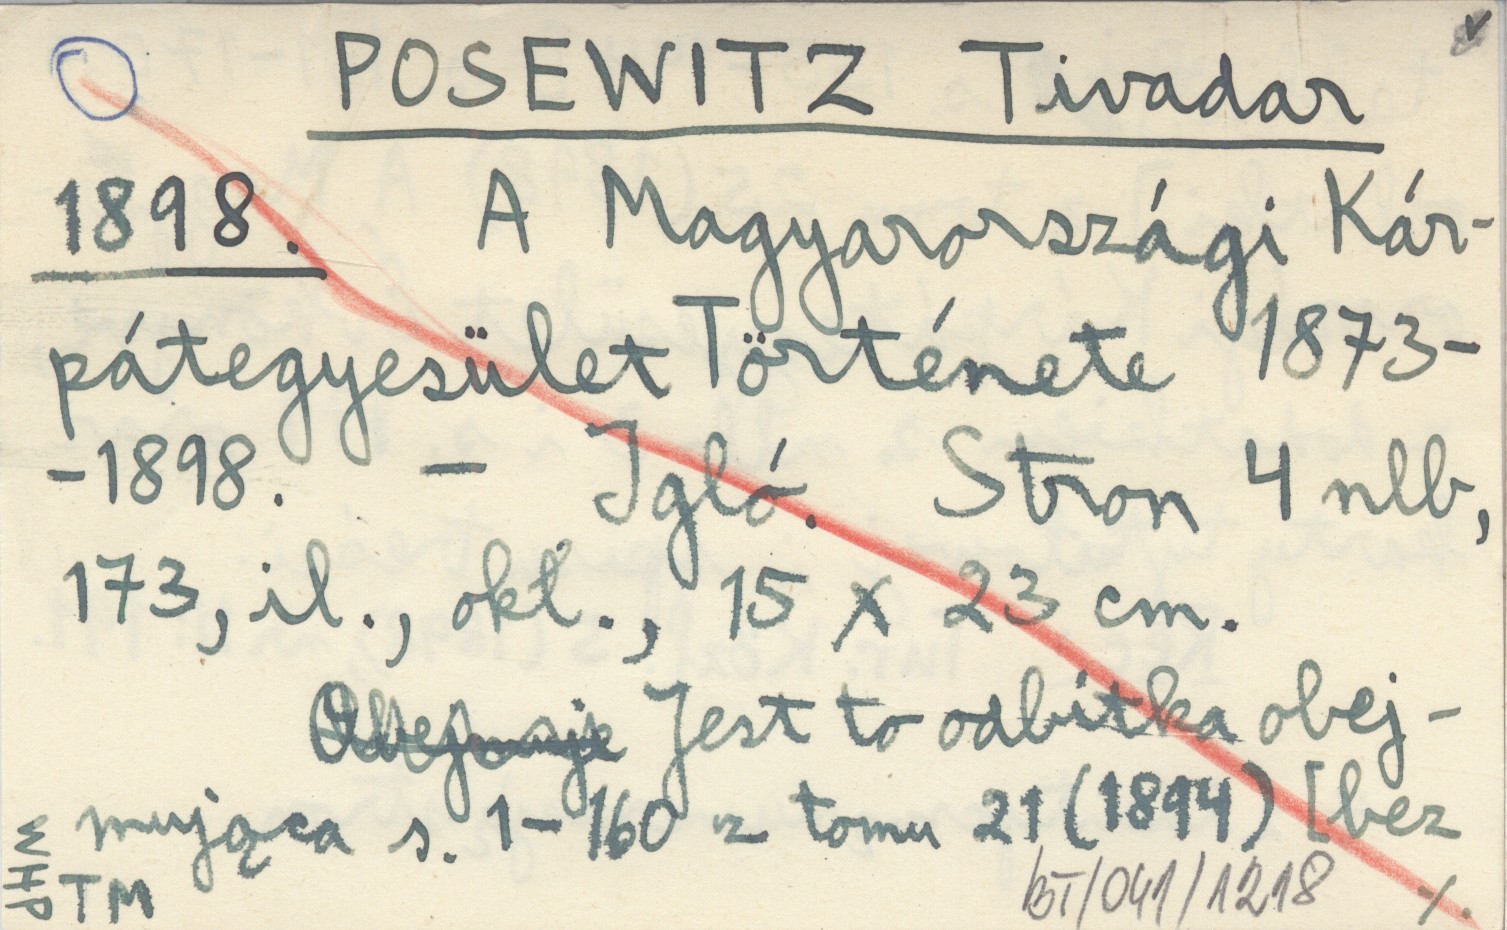 POSEWITZ Tivadar
1898. A Magyarországi Kár-
pátegyesület Története 1873-
-1898. — Igló. Stron 4 nlb,
173, il., okł., 15 x 23 cm.
Obejmuje Jest to odbitka obej-
mująca s. 1-160 z tomu 21 (1894) [bez
WHP
TM
BT/041/1218
./.